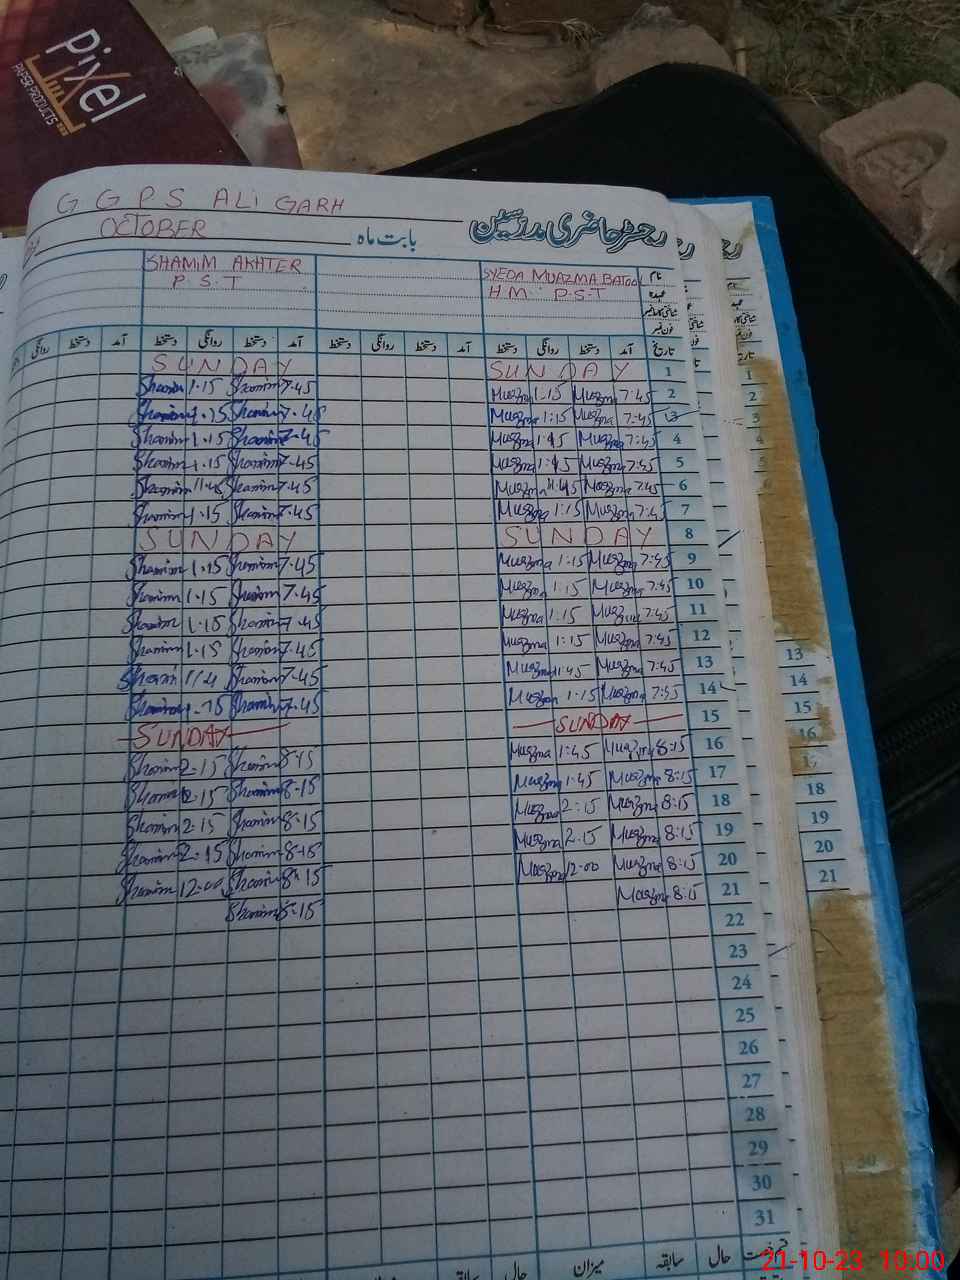 pixel
PAPER PRODUCTS
G G P S ALI GARH
رجسٹر حاضری مدرسین
بابت ماہ OCTOBER
نام SYEDA MUAZMA BATOOL SHAMIM AKHTER
عہدہ HM P.S.T P.S.T
شناختی کارڈ نمبر
فون نمبر
تاریخ آمد دستخط روانگی دستخط آمد دستخط روانگی دستخط آمد دستخط روانگی دستخط آمد دستخط روانگی
SUNDAY SUNDAY 1
Shamim 1.15 Shamim 7.45 Muazma 1.15 Muazma 7:45 2
Shamim 1.15 Shamim 7.45 Muazma 1:15 Muazma 7.45 3
Shamim 1.15 Shamim 7.45 Muazma Muazma 7:45 4
Shamim 1.15 Shamim 7.45 Muazma Muazma 7:45 5
Shamim Shamim 7.45 Muazma Muazma 7.45 6
Shamim 1.15 Shamim 7.45 Muazma 1:15 Muazma 7.45 7
SUNDAY SUNDAY 8
Shamim 1.15 Shamim 7.45 Muazma 1:15 Muazma 7:45 9
Shamim 1.15 Shamim 7.45 Muazma 1:15 Muazma 7:45 10
Shamim 1.15 Shamim 7.45 Muazma 1:15 Muazma 7:45 11
Shamim 1.15 Shamim 7.45 Muazma 1:15 Muazma 7:45 12
Shamim Shamim 7.45 Muazma 11:45 Muazma 7:45 13
Shamim 1.15 Shamim 7.45 Muazma 1:15 Muazma 7:45 14
SUNDAY SUNDAY 15
Shamim 2.15 Shamim 8:15 Muazma 1:45 Muazma 8:15 16
Shamim 2.15 Shamim 8.15 Muazma 1:45 Muazma 8:15 17
Shamim 2:15 Shamim 8.15 Muazma 2:15 Muazma 8:15 18
Shamim 2.15 Shamim 8.15 Muazma 2.15 Muazma 8:15 19
Shamim 12.00 Shamim 8.15 Muazma 12.00 Muazma 8:15 20
Shamim 8.15 Muazma 8:15 21
22
23
24
25
26
27
28
29
30
31
رخصت حال سابقہ میزان حال سابقہ
13
14
15
16
17
18
19
20
21
30
21-10-23 10:00